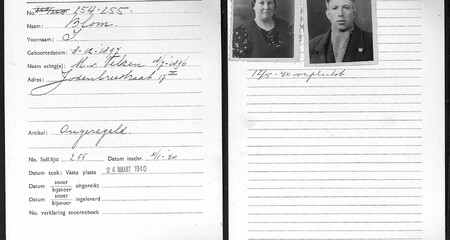 No. 254-255.
Naam: Blom.
Voornaam: I
Geboortedatum: -12-1897
Naam echtg(e): M. v. Velsen 4/7-1896
Adres: Jodenbreestraat 17 II
Artikel: Ongeregeld.
No. Soll.lijst: 255 Datum inschr. /1-40
Datum toek: Vaste plaats 24 MAART 1940
Datum snoer bijsnoer uitgereikt
Datum snoer bijsnoer ingeleverd
No. verklaring snoerenboek
12/5-40